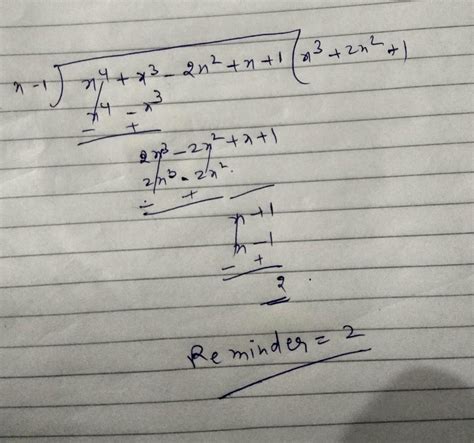 x-1) x⁴ + x³ - 2x² + x + 1 (x³ + 2x² + 1
x⁴ - x³
- +
2x³ - 2x² + x + 1
2x³ - 2x²
- +
x + 1
x - 1
- +
2
Reminder = 2